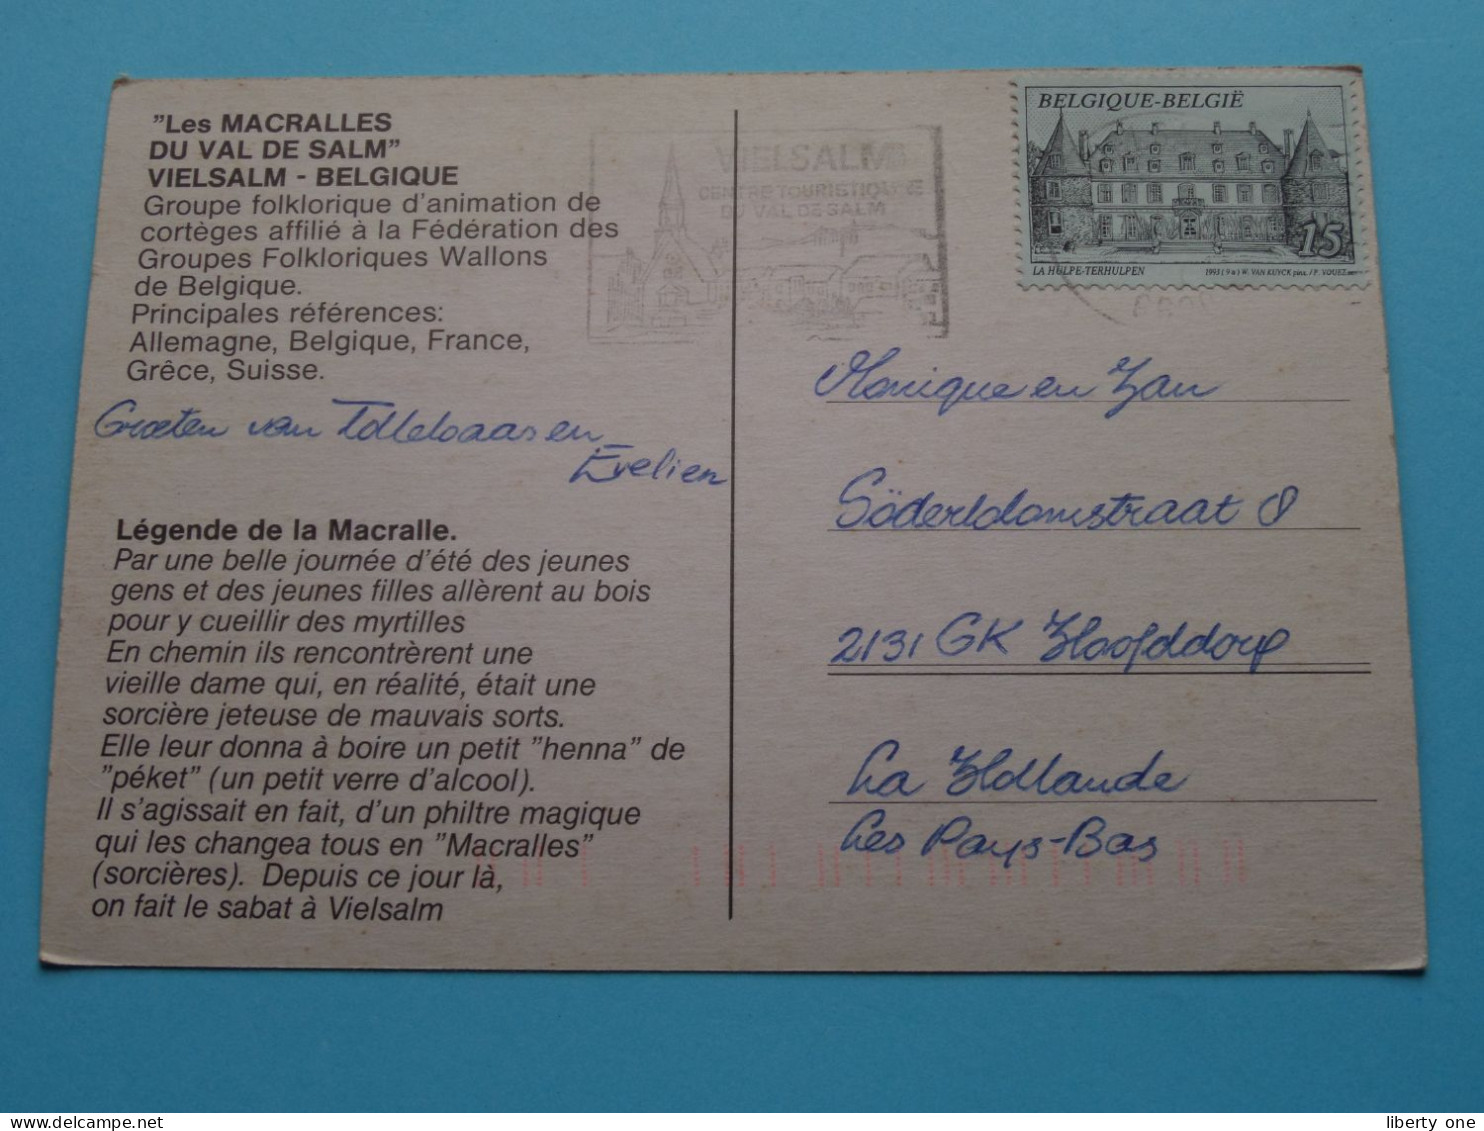 "Les MACRALLES
DU VAL DE SALM"
VIELSALM - BELGIQUE
Groupe folklorique d'animation de
cortèges affilié à la Fédération des
Groupes Folkloriques Wallons
de Belgique.
Principales références:
Allemagne, Belgique, France,
Grêce, Suisse.
Groeten van
Evelien
Légende de la Macralle.
Par une belle journée d'été des jeunes
gens et des jeunes filles allèrent au bois
pour y cueillir des myrtilles
En chemin ils rencontrèrent une
vieille dame qui, en réalité, était une
sorcière jeteuse de mauvais sorts.
Elle leur donna à boire un petit "henna" de
"péket" (un petit verre d'alcool).
Il s'agissait en fait, d'un philtre magique
qui les changea tous en "Macralles"
(sorcières). Depuis ce jour là,
on fait le sabat à Vielsalm
VIELSALM
CENTRE TOURISTIQUE
DU VAL DE SALM
BELGIQUE-BELGIË
15
LA HULPE-TERHULPEN 1993 (9a) W. VAN KUYCK pinx. / P. VOUEZ
Monique en Jan
Söderblomstraat 8
2131 GK Hoofddorp
La Hollande
Les Pays-Bas
liberty one